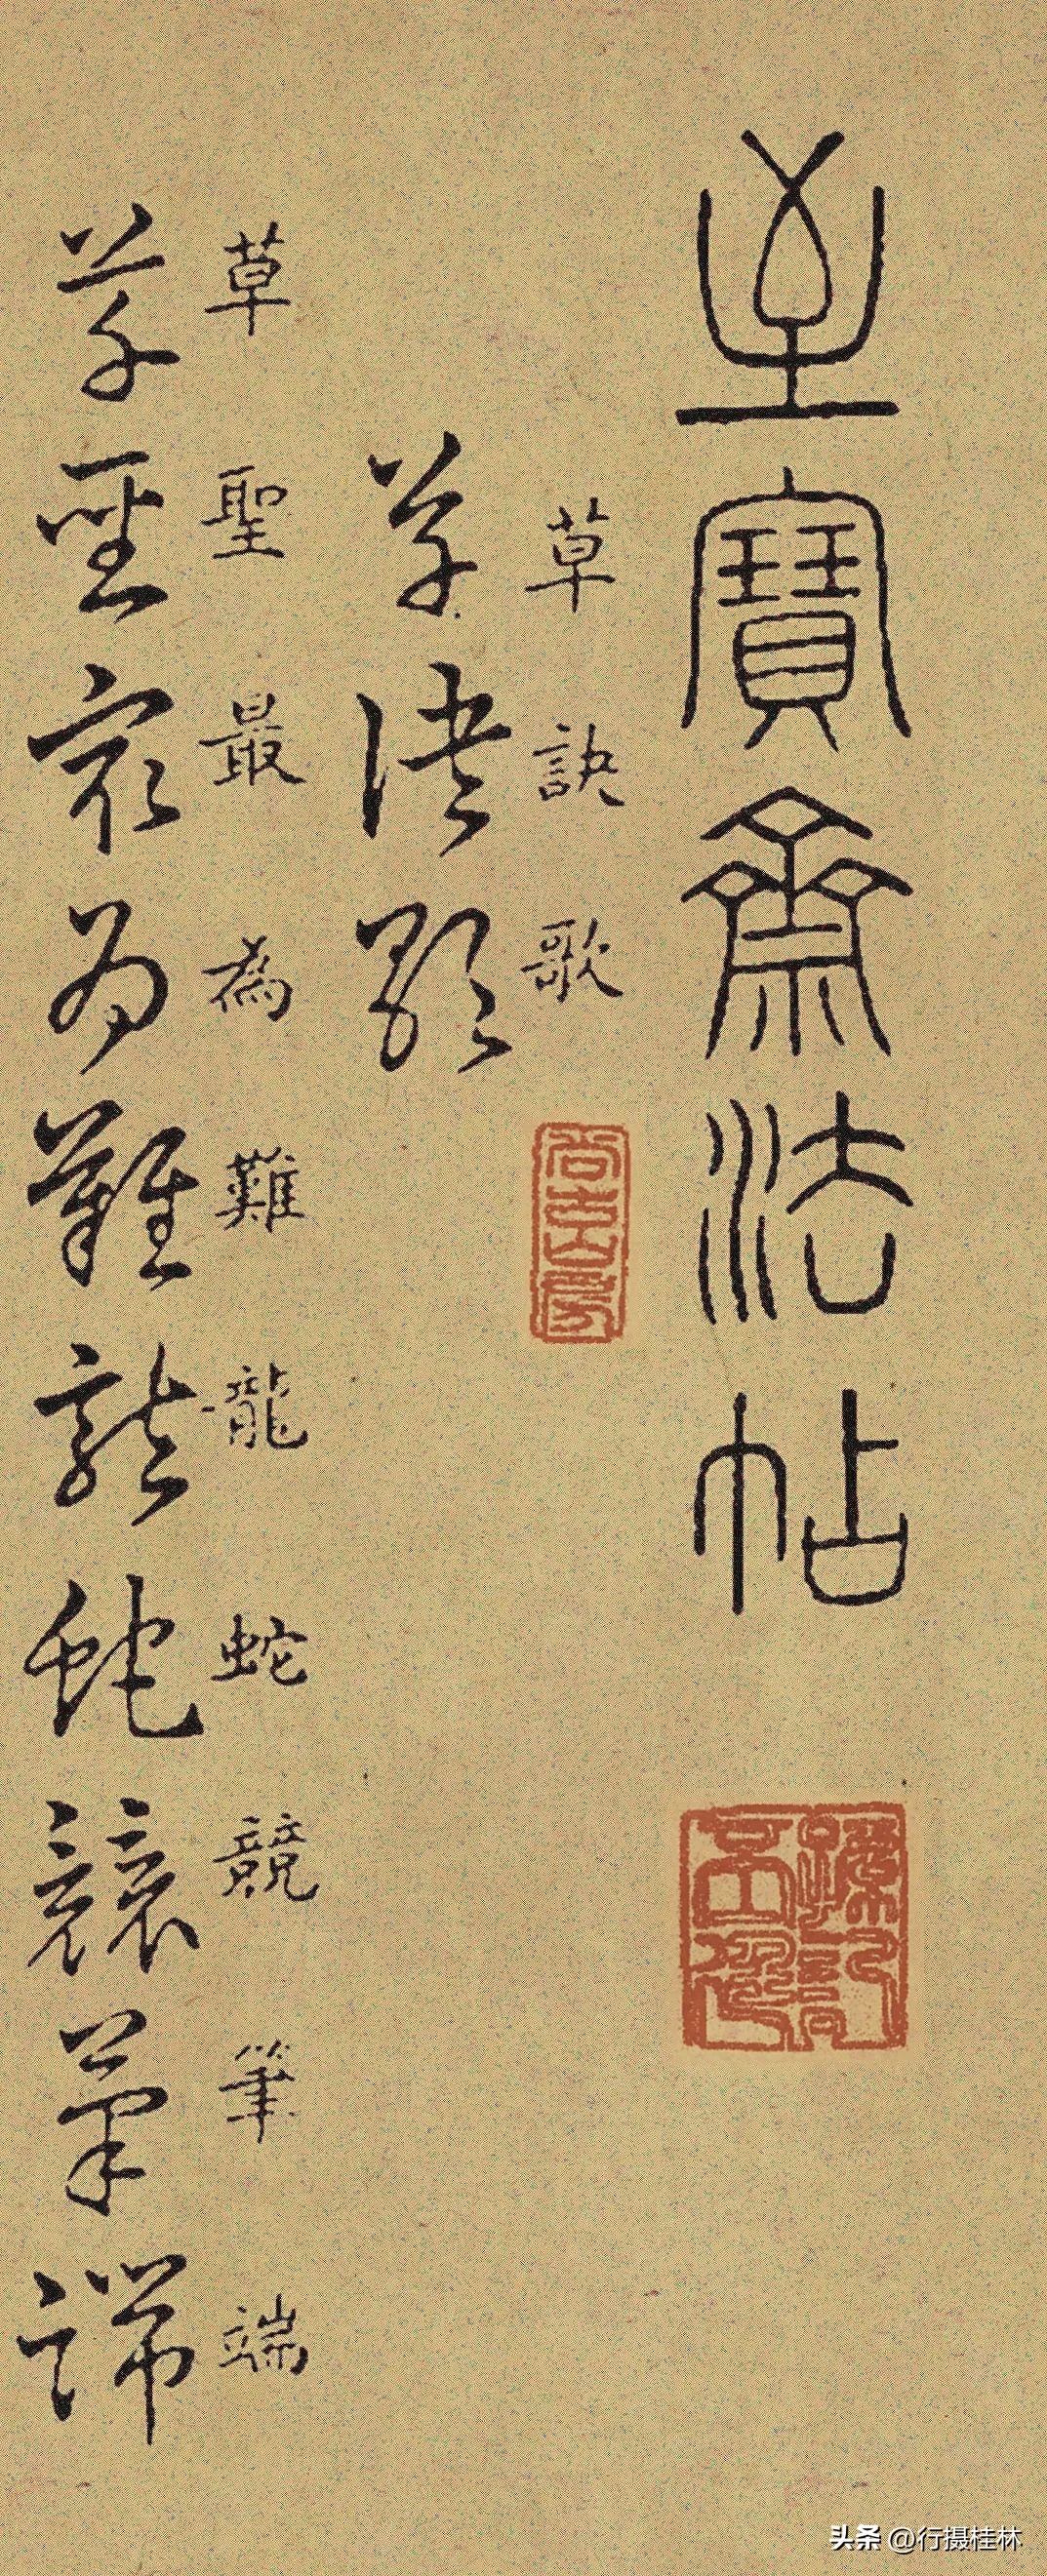 至寶齋法帖
草訣歌
尚古山房
草訣歌
草聖最為難龍蛇競筆端
草聖最為難龍蛇競筆端
头条 @行摄桂林